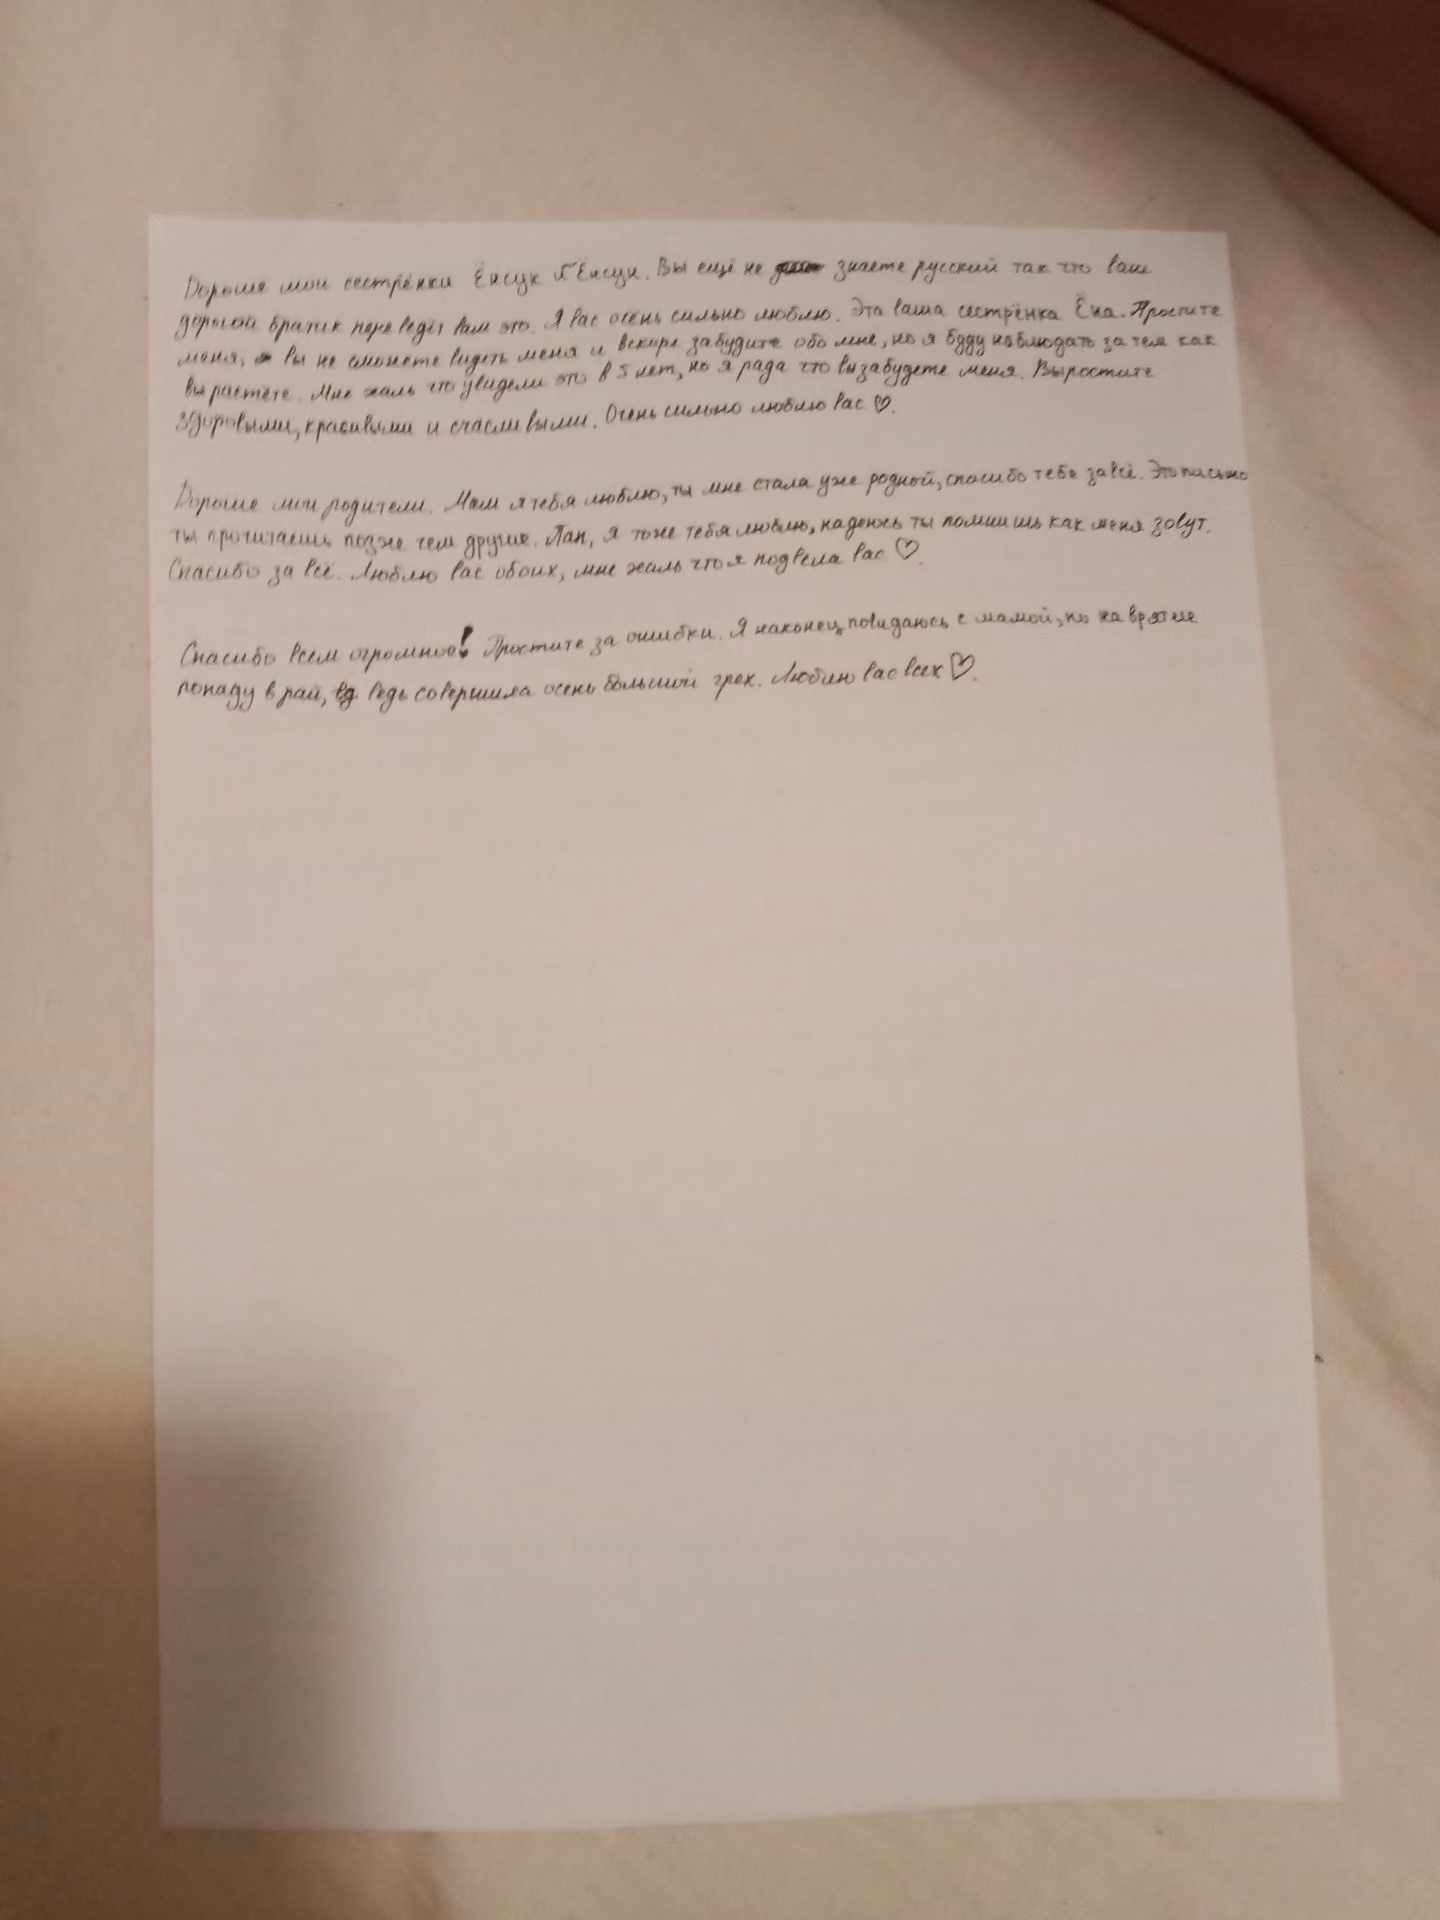 Дорогие мои сестрёнки Ёнсук и Ёнсун. Вы ещё не знаете русский так что ваш
дорогой братик переведёт вам это. Я вас очень сильно люблю. Эта ваша сестрёнка Ёна. Простите
меня, вы не сможете видеть меня и вскоре забудите обо мне, но я буду наблюдать за тем как
вы растёте. Мне жаль что увидели это в 5 лет, но я рада что вы забудете меня. Выростите
здоровыми, красивыми и счасливыми. Очень сильно люблю вас ♡.
Дорогие мои родители. Мам я тебя люблю, ты мне стала уже родной, спасибо тебе за всё. Это письмо
ты прочитаешь позже чем другие. Пап, я тоже тебя люблю, надеюсь ты помнишь как меня зовут.
Спасибо за всё. Люблю вас обоих, мне жаль что я подвела вас ♡.
Спасибо всем огромное! Простите за ошибки. Я наконец повидаюсь с мамой, но
попаду в рай, ведь совершила очень большой грех. Люблю вас всех ♡.